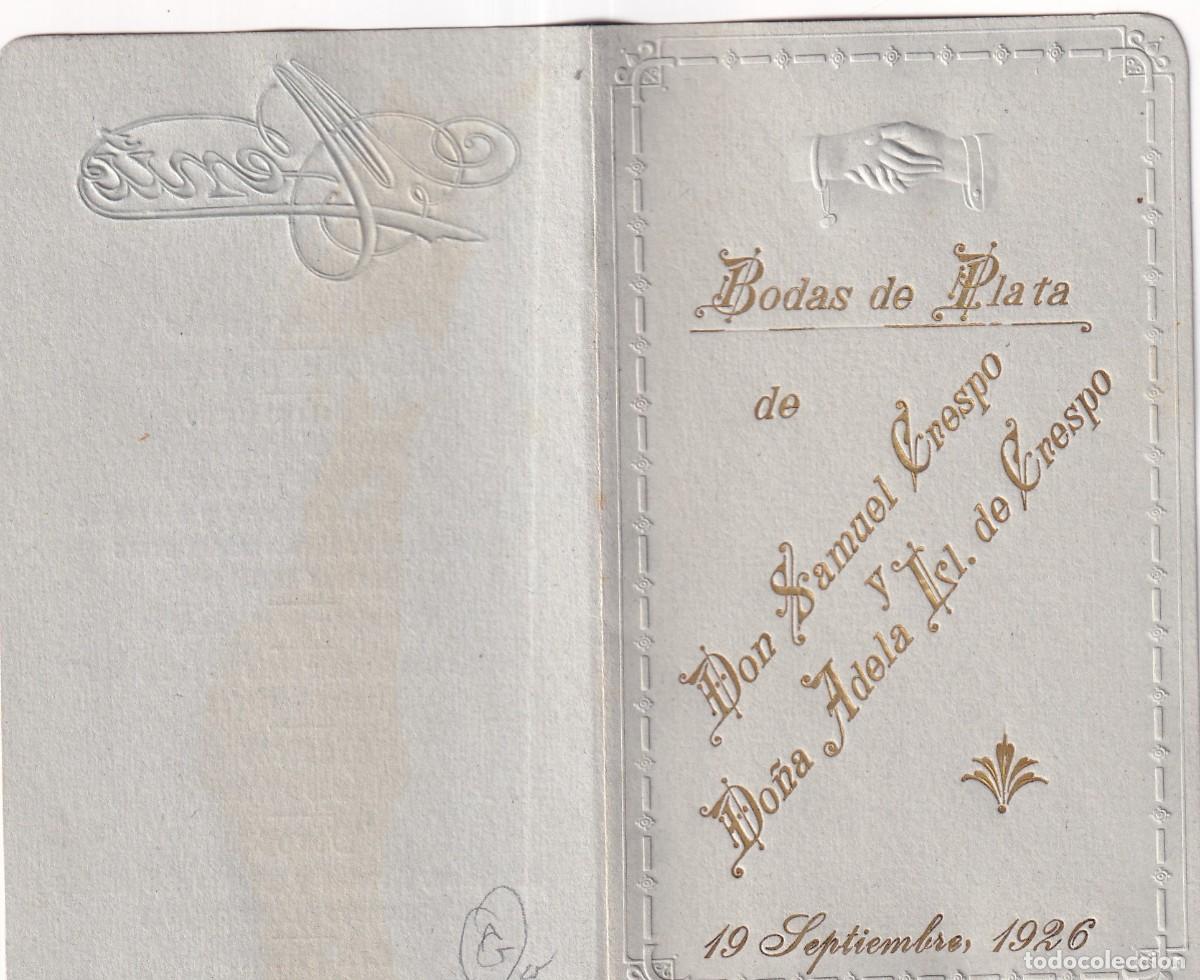 Bodas de Plata
de
Don Samuel Crespo
y
Doña Adela Isl. de Crespo
19 Septiembre, 1926
todocoleccion